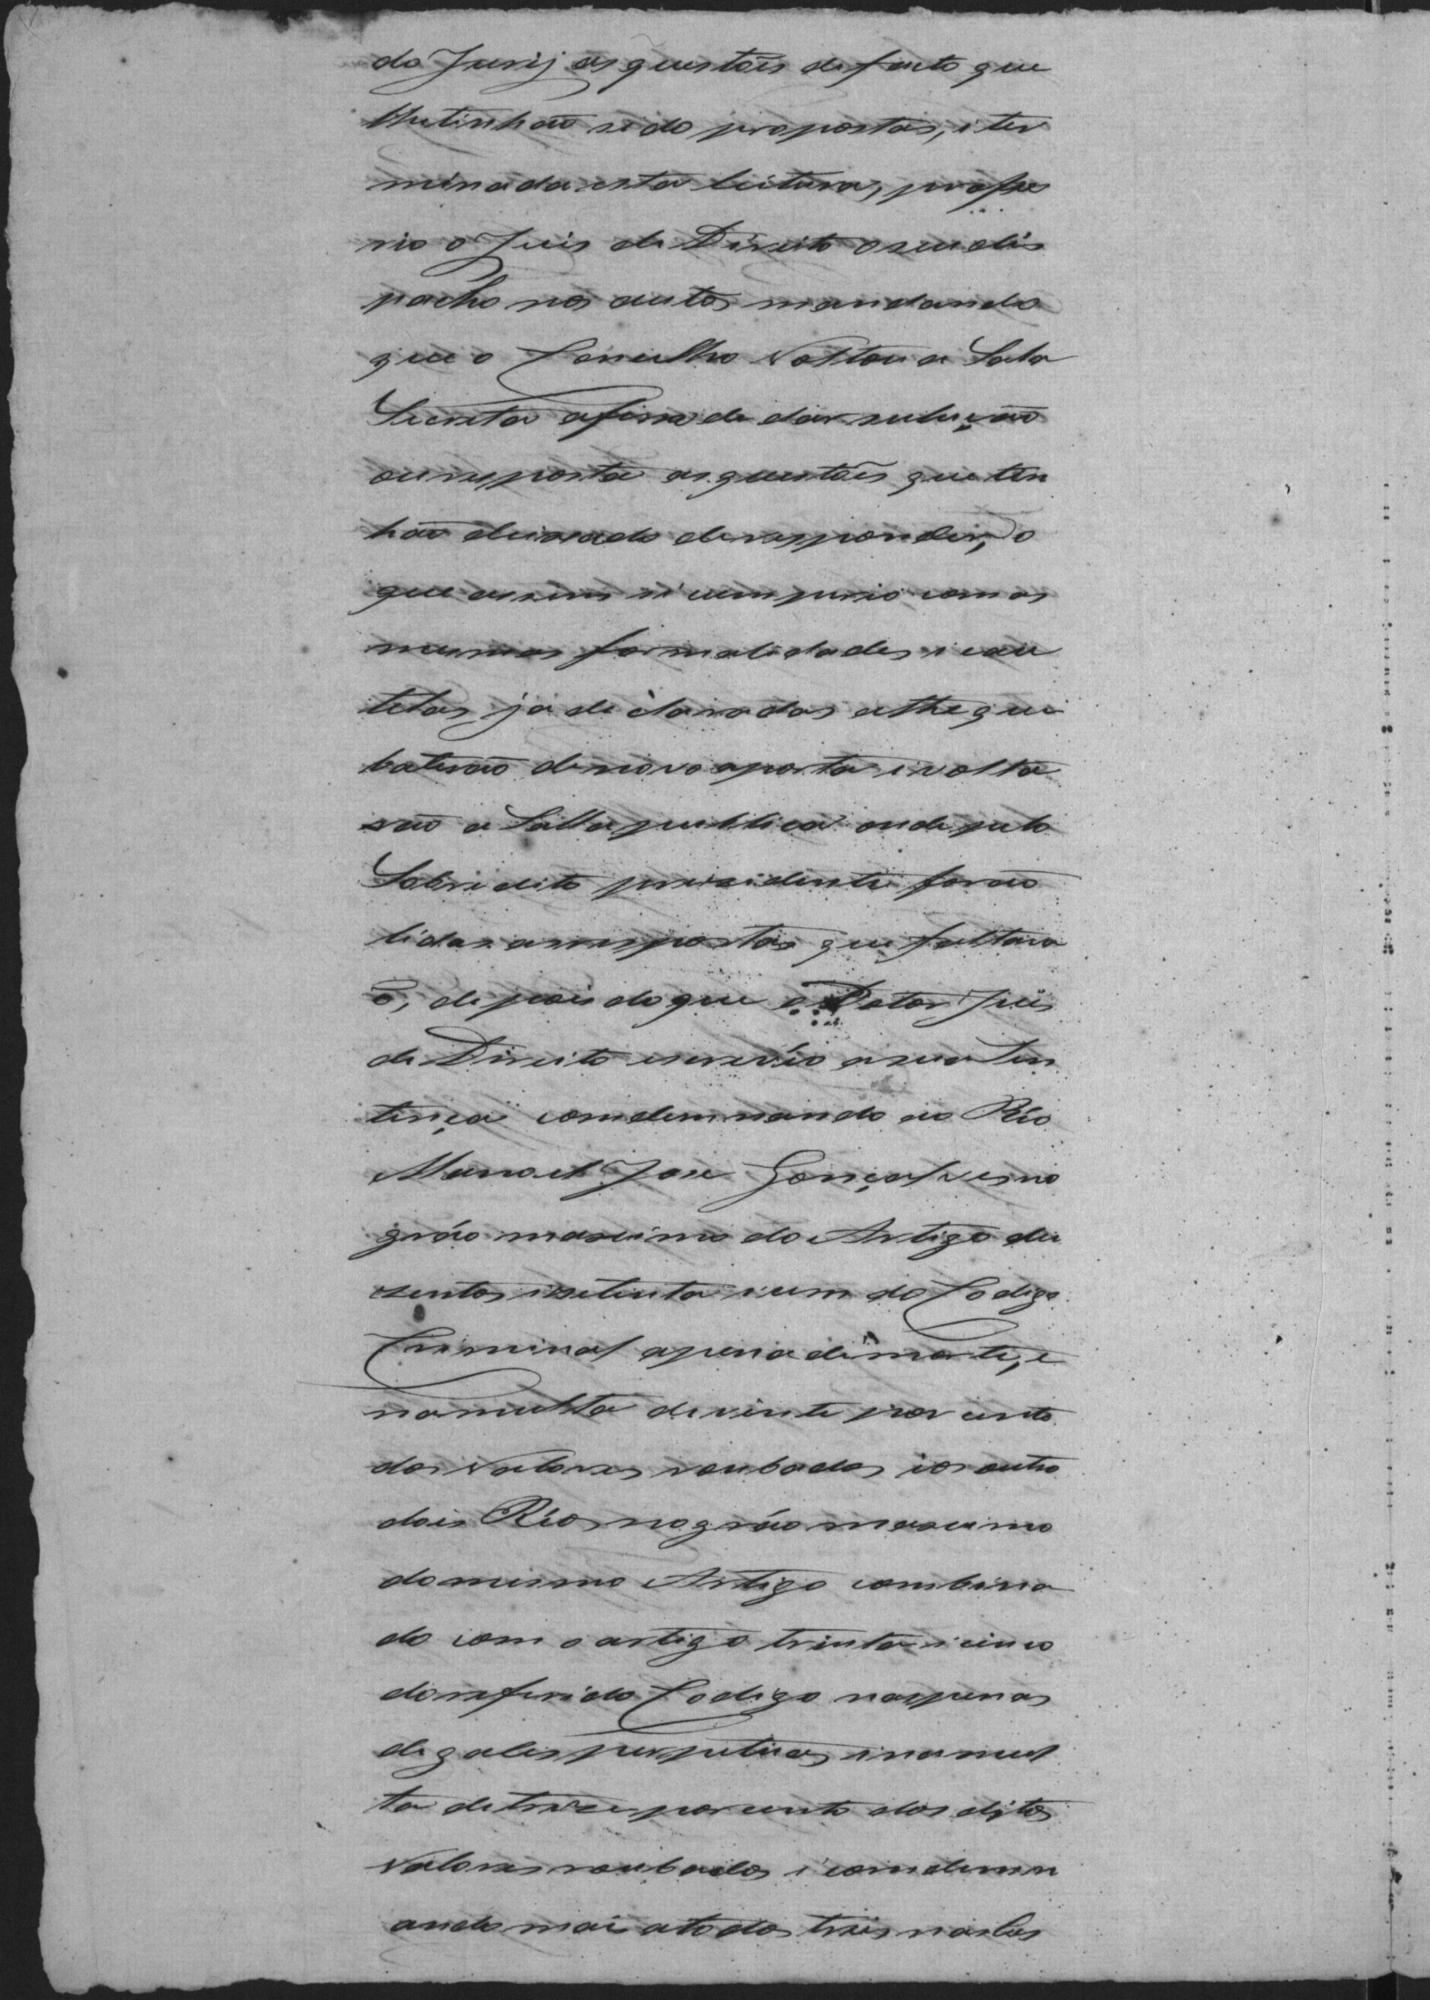 do Jurij as questoẽs de facto que
lhe tinhaõ sido propostas, e ter
minada esta leitura, profe
rio o Juis de Direito o seu dis
pacho nos autos mandando
que o Concelho voltou a Sala
Secreta afim de dar suluçaõ
ou resposta as questoẽs que tin
haõ deixado de responder, o
que assim se cumprio com as
mesmas formalidades e cau
tellas já declaradas athe que
bateraõ de novo a porta e volta
raõ a Salla publica onde pelo
Sobredito prezidente foraõ
lidas as respostas que faltava
õ, depois do que o Dotor Juis
de Direito escrevêo a sua Sen
tença comdemnando ao Réo
Manoel Jose Gonçalves no
gráo maximo do Artigo du
zentos e setenta e um do Codigo
Criminal a pena de morte, e
na multa de vinte por cento
dos valores roubados e os outro
dois Réos no gráo maximo
do mesmo Artigo combina
do com o artigo trinta e cinco
do referido Codigo nas penas
de gales perpetuas e na mul
ta de treze por cento dos ditos
valores roubados e comdemn
ando mais a todos tres nas Cus